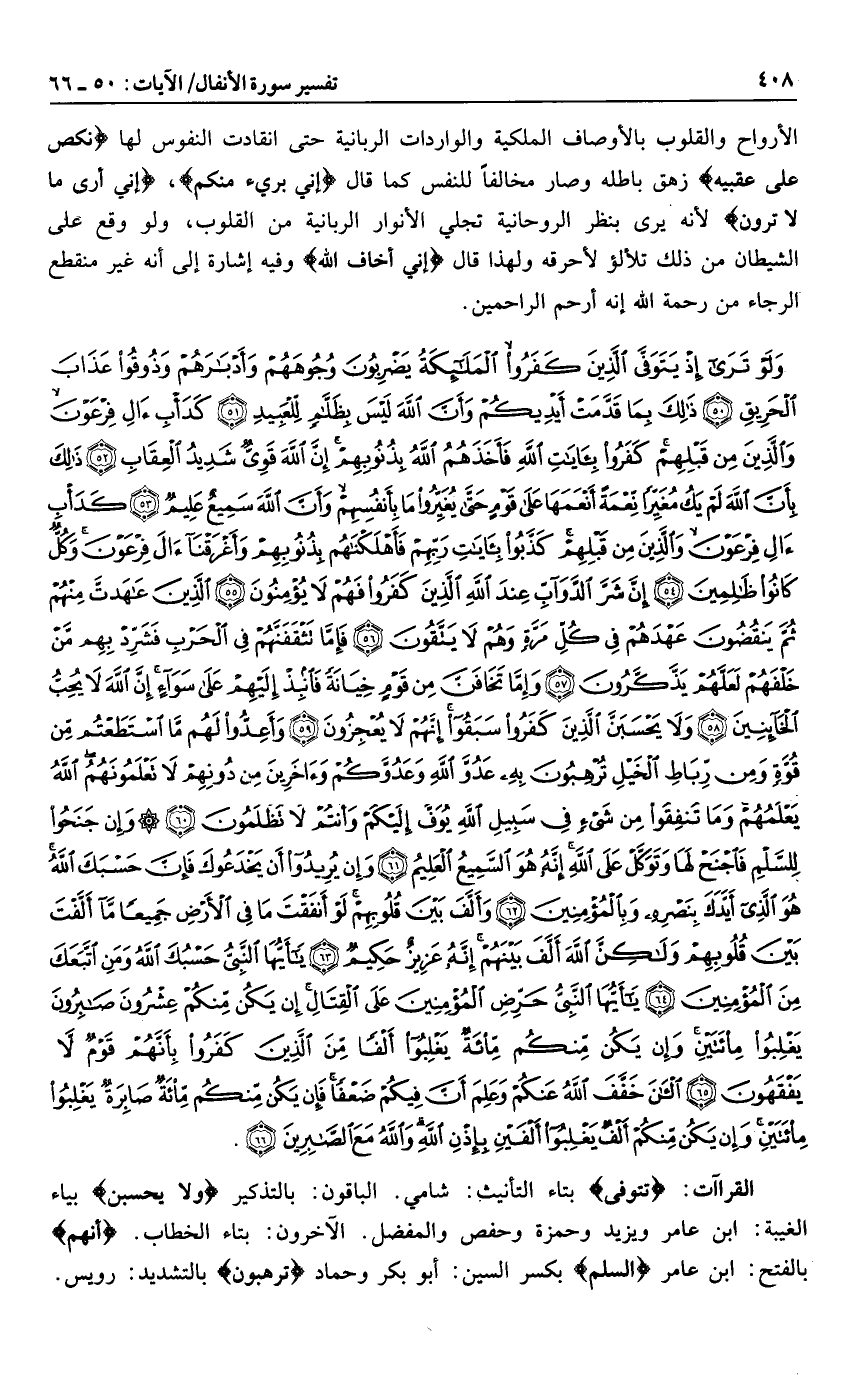 ٤٠٨
تفسير سورة الأنفال/ الآيات: ٥٠ ـ ٦٦
الأرواح والقلوب بالأوصاف الملكية والواردات الربانية حتى انقادت النفوس لها ﴿نكص
على عقبيه﴾ زهق باطله وصار مخالفاً للنفس كما قال ﴿إني بريء منكم﴾، ﴿إني أرى ما
لا ترون﴾ لأنه يرى بنظر الروحانية تجلي الأنوار الربانية من القلوب، ولو وقع على
الشيطان من ذلك تلألؤ لأحرقه ولهذا قال ﴿إني أخاف الله﴾ وفيه إشارة إلى أنه غير منقطع
الرجاء من رحمة الله إنه أرحم الراحمين.
وَلَوْ تَرَىٰٓ إِذْ يَتَوَفَّى ٱلَّذِينَ كَفَرُوا۟ ۙ ٱلْمَلَٰٓئِكَةُ يَضْرِبُونَ وُجُوهَهُمْ وَأَدْبَٰرَهُمْ وَذُوقُوا۟ عَذَابَ
ٱلْحَرِيقِ ﴿٥٠﴾ ذَٰلِكَ بِمَا قَدَّمَتْ أَيْدِيكُمْ وَأَنَّ ٱللَّهَ لَيْسَ بِظَلَّٰمٍ لِّلْعَبِيدِ ﴿٥١﴾ كَدَأْبِ ءَالِ فِرْعَوْنَ ۙ
وَٱلَّذِينَ مِن قَبْلِهِمْ ۚ كَفَرُوا۟ بِـَٔايَٰتِ ٱللَّهِ فَأَخَذَهُمُ ٱللَّهُ بِذُنُوبِهِمْ ۗ إِنَّ ٱللَّهَ قَوِىٌّ شَدِيدُ ٱلْعِقَابِ ﴿٥٢﴾ ذَٰلِكَ
بِأَنَّ ٱللَّهَ لَمْ يَكُ مُغَيِّرًا نِّعْمَةً أَنْعَمَهَا عَلَىٰ قَوْمٍ حَتَّىٰ يُغَيِّرُوا۟ مَا بِأَنفُسِهِمْ ۙ وَأَنَّ ٱللَّهَ سَمِيعٌ عَلِيمٌ ﴿٥٣﴾ كَدَأْبِ
ءَالِ فِرْعَوْنَ ۙ وَٱلَّذِينَ مِن قَبْلِهِمْ ۚ كَذَّبُوا۟ بِـَٔايَٰتِ رَبِّهِمْ فَأَهْلَكْنَٰهُم بِذُنُوبِهِمْ وَأَغْرَقْنَآ ءَالَ فِرْعَوْنَ ۚ وَكُلٌّ
كَانُوا۟ ظَٰلِمِينَ ﴿٥٤﴾ إِنَّ شَرَّ ٱلدَّوَآبِّ عِندَ ٱللَّهِ ٱلَّذِينَ كَفَرُوا۟ فَهُمْ لَا يُؤْمِنُونَ ﴿٥٥﴾ ٱلَّذِينَ عَٰهَدتَّ مِنْهُمْ
ثُمَّ يَنقُضُونَ عَهْدَهُمْ فِى كُلِّ مَرَّةٍ وَهُمْ لَا يَتَّقُونَ ﴿٥٦﴾ فَإِمَّا تَثْقَفَنَّهُمْ فِى ٱلْحَرْبِ فَشَرِّدْ بِهِم مَّنْ
خَلْفَهُمْ لَعَلَّهُمْ يَذَّكَّرُونَ ﴿٥٧﴾ وَإِمَّا تَخَافَنَّ مِن قَوْمٍ خِيَانَةً فَٱنۢبِذْ إِلَيْهِمْ عَلَىٰ سَوَآءٍ ۚ إِنَّ ٱللَّهَ لَا يُحِبُّ
ٱلْخَآئِنِينَ ﴿٥٨﴾ وَلَا يَحْسَبَنَّ ٱلَّذِينَ كَفَرُوا۟ سَبَقُوٓا۟ ۚ إِنَّهُمْ لَا يُعْجِزُونَ ﴿٥٩﴾ وَأَعِدُّوا۟ لَهُم مَّا ٱسْتَطَعْتُم مِّن
قُوَّةٍ وَمِن رِّبَاطِ ٱلْخَيْلِ تُرْهِبُونَ بِهِۦ عَدُوَّ ٱللَّهِ وَعَدُوَّكُمْ وَءَاخَرِينَ مِن دُونِهِمْ لَا تَعْلَمُونَهُمُ ٱللَّهُ
يَعْلَمُهُمْ ۚ وَمَا تُنفِقُوا۟ مِن شَىْءٍ فِى سَبِيلِ ٱللَّهِ يُوَفَّ إِلَيْكُمْ وَأَنتُمْ لَا تُظْلَمُونَ ﴿٦٠﴾ ۞ وَإِن جَنَحُوا۟
لِلسَّلْمِ فَٱجْنَحْ لَهَا وَتَوَكَّلْ عَلَى ٱللَّهِ ۚ إِنَّهُۥ هُوَ ٱلسَّمِيعُ ٱلْعَلِيمُ ﴿٦١﴾ وَإِن يُرِيدُوٓا۟ أَن يَخْدَعُوكَ فَإِنَّ حَسْبَكَ ٱللَّهُ ۚ
هُوَ ٱلَّذِىٓ أَيَّدَكَ بِنَصْرِهِۦ وَبِٱلْمُؤْمِنِينَ ﴿٦٢﴾ وَأَلَّفَ بَيْنَ قُلُوبِهِمْ ۚ لَوْ أَنفَقْتَ مَا فِى ٱلْأَرْضِ جَمِيعًا مَّآ أَلَّفْتَ
بَيْنَ قُلُوبِهِمْ وَلَٰكِنَّ ٱللَّهَ أَلَّفَ بَيْنَهُمْ ۚ إِنَّهُۥ عَزِيزٌ حَكِيمٌ ﴿٦٣﴾ يَٰٓأَيُّهَا ٱلنَّبِىُّ حَسْبُكَ ٱللَّهُ وَمَنِ ٱتَّبَعَكَ
مِنَ ٱلْمُؤْمِنِينَ ﴿٦٤﴾ يَٰٓأَيُّهَا ٱلنَّبِىُّ حَرِّضِ ٱلْمُؤْمِنِينَ عَلَى ٱلْقِتَالِ ۚ إِن يَكُن مِّنكُمْ عِشْرُونَ صَٰبِرُونَ
يَغْلِبُوا۟ مِا۟ئَتَيْنِ ۚ وَإِن يَكُن مِّنكُم مِّا۟ئَةٌ يَغْلِبُوٓا۟ أَلْفًا مِّنَ ٱلَّذِينَ كَفَرُوا۟ بِأَنَّهُمْ قَوْمٌ لَّا
يَفْقَهُونَ ﴿٦٥﴾ ٱلْـَٰٔنَ خَفَّفَ ٱللَّهُ عَنكُمْ وَعَلِمَ أَنَّ فِيكُمْ ضَعْفًا ۚ فَإِن يَكُن مِّنكُم مِّا۟ئَةٌ صَابِرَةٌ يَغْلِبُوا۟
مِا۟ئَتَيْنِ ۚ وَإِن يَكُن مِّنكُمْ أَلْفٌ يَغْلِبُوٓا۟ أَلْفَيْنِ بِإِذْنِ ٱللَّهِ ۗ وَٱللَّهُ مَعَ ٱلصَّٰبِرِينَ ﴿٦٦﴾ .
القراآت: ﴿تتوفى﴾ بتاء التأنيث: شامي. الباقون: بالتذكير ﴿ولا يحسبن﴾ بياء
الغيبة: ابن عامر ويزيد وحمزة وحفص والمفضل. الآخرون: بتاء الخطاب. ﴿أنهم﴾
بالفتح: ابن عامر ﴿السلم﴾ بكسر السين: أبو بكر وحماد ﴿ترهبون﴾ بالتشديد: رويس.